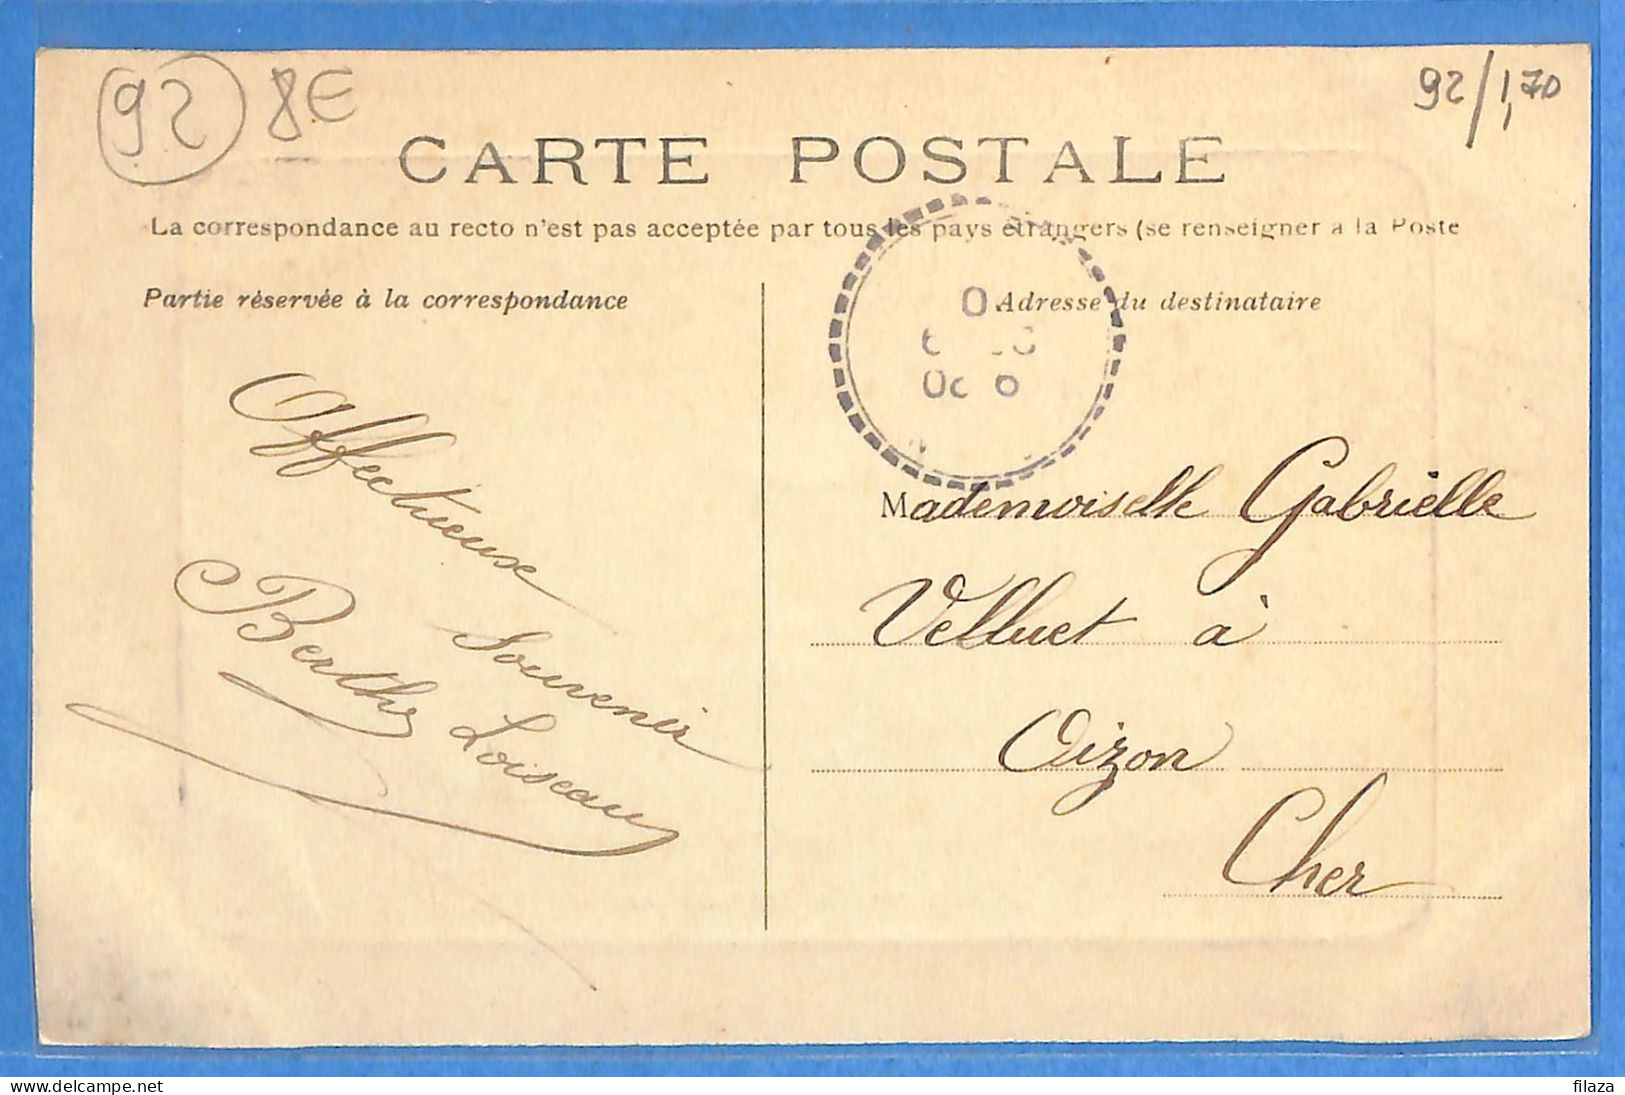 92 8€
92/1,70
CARTE POSTALE
La correspondance au recto n'est pas acceptée par tous les pays étrangers (se renseigner à la Poste
Partie réservée à la correspondance
Adresse du destinataire
Affectueux
Souvenir
Berthe Loiseau
Mademoiselle Gabrielle
Velluet à
Oizon
Cher
filaza